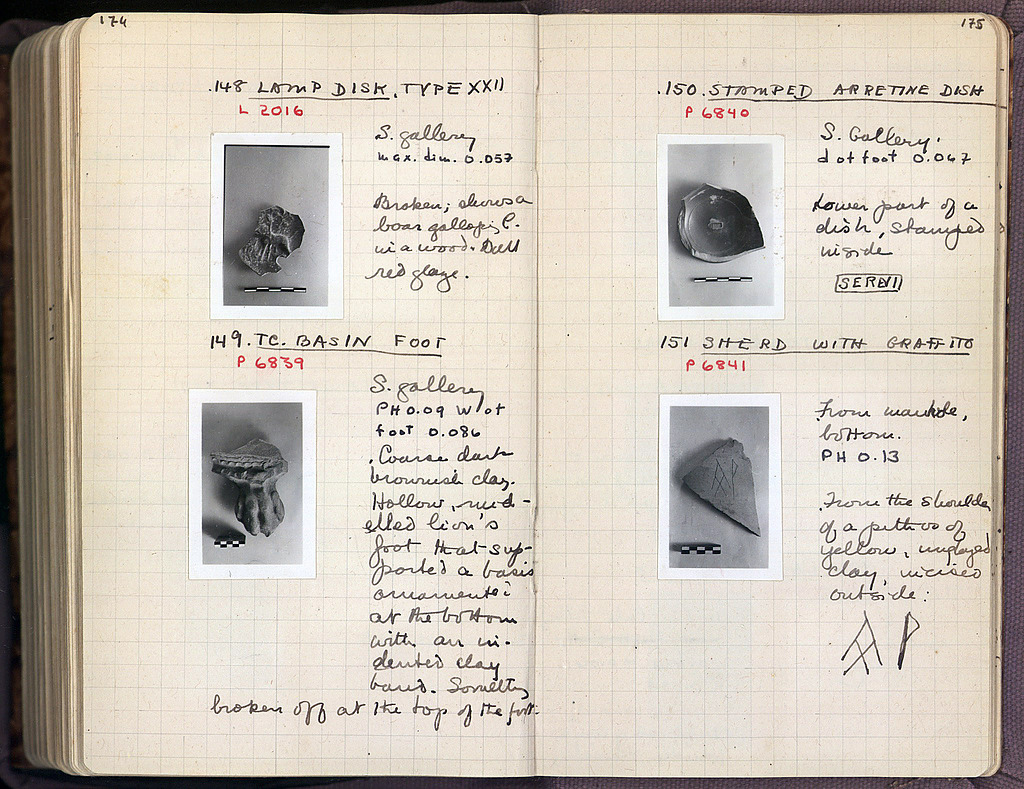 174
.148 LAMP DISK, TYPE XXII
L 2016
S. gallery
max. dim. 0.057
Broken; shows a
boar galloping l.
in a wood. Dull
red glaze.
149. TC. BASIN FOOT
P 6839
S. gallery
PH 0.09 W of
foot 0.086
Coarse dark
brownish clay.
Hollow, mod-
elled lion's
foot that sup-
ported a basin
ornamented
at the bottom
with an in-
dented clay
band. Something
broken off at the top of the foot.
175
.150. STAMPED ARRETINE DISH
P 6840
S. Gallery.
d of foot 0.067
Lower part of a
dish, stamped
inside
151 SHERD WITH GRAFFITO
P 6841
From manhole,
bottom.
PH 0.13
From the shoulder
of a pithos of
yellow, unglazed
clay, incised
outside: